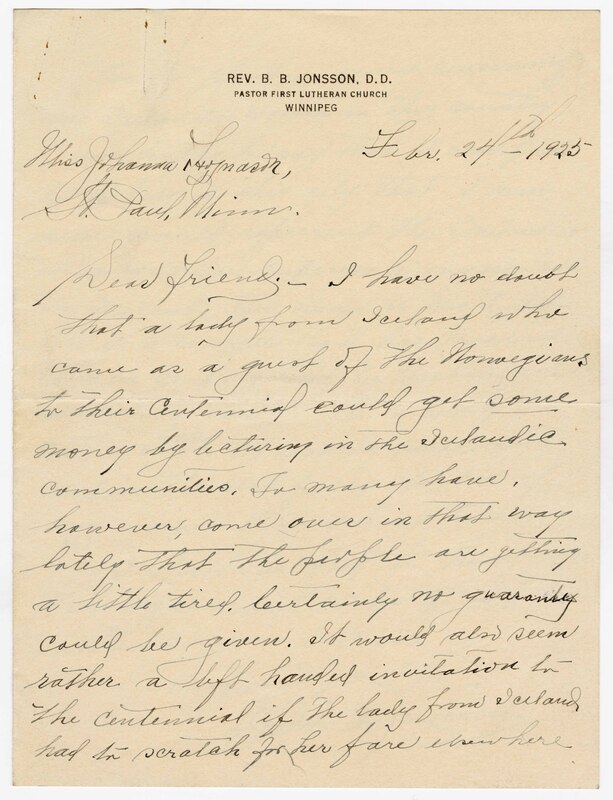 REV. B. B. JONSSON, D.D.
PASTOR FIRST LUTHERAN CHURCH
WINNIPEG
Febr. 24th – 1925
Miss Johanna
St. Paul, Minn.
Dear friend. – I have no doubt
that a lady from Iceland who
came as a guest of the Norwegians
to their Centennial could get some
money by lecturing in the Icelandic
communities. So many have,
however, come over in that way
lately that the people are getting
a little tired. Certainly no guaranty
could be given. It would also seem
rather a left handed invitation to
the centennial if the lady from Iceland
had to scratch for her fare elsewhere